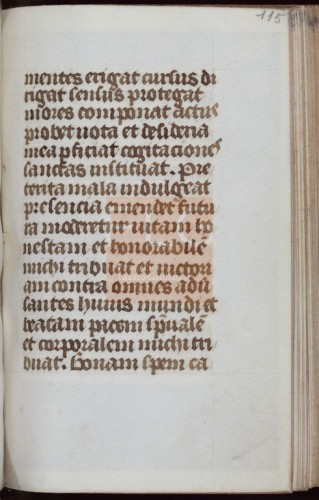 115
mentes erigat cursus di
rigat sensus protegat
mores componat actus
probet uota et desideria
mea pficiat cogitaciones
sanctas instituat. Pre
terita mala indulgeat
presencia emendet futu
ra moderetur uitam ho
nestam et honorabilē
michi tribuat et uictori
am contra omnes adū
santes huius mundi et
beatam pacem spūalē
et corporalem michi tri
buat. Bonam spem ca